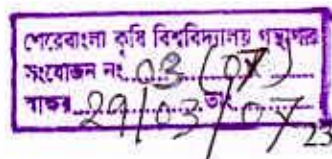 শেরেবাংলা কৃষি বিশ্ববিদ্যালয় গন্থাগার
সংযোজন নং 03 (07)
স্বাক্ষর 29/03/07